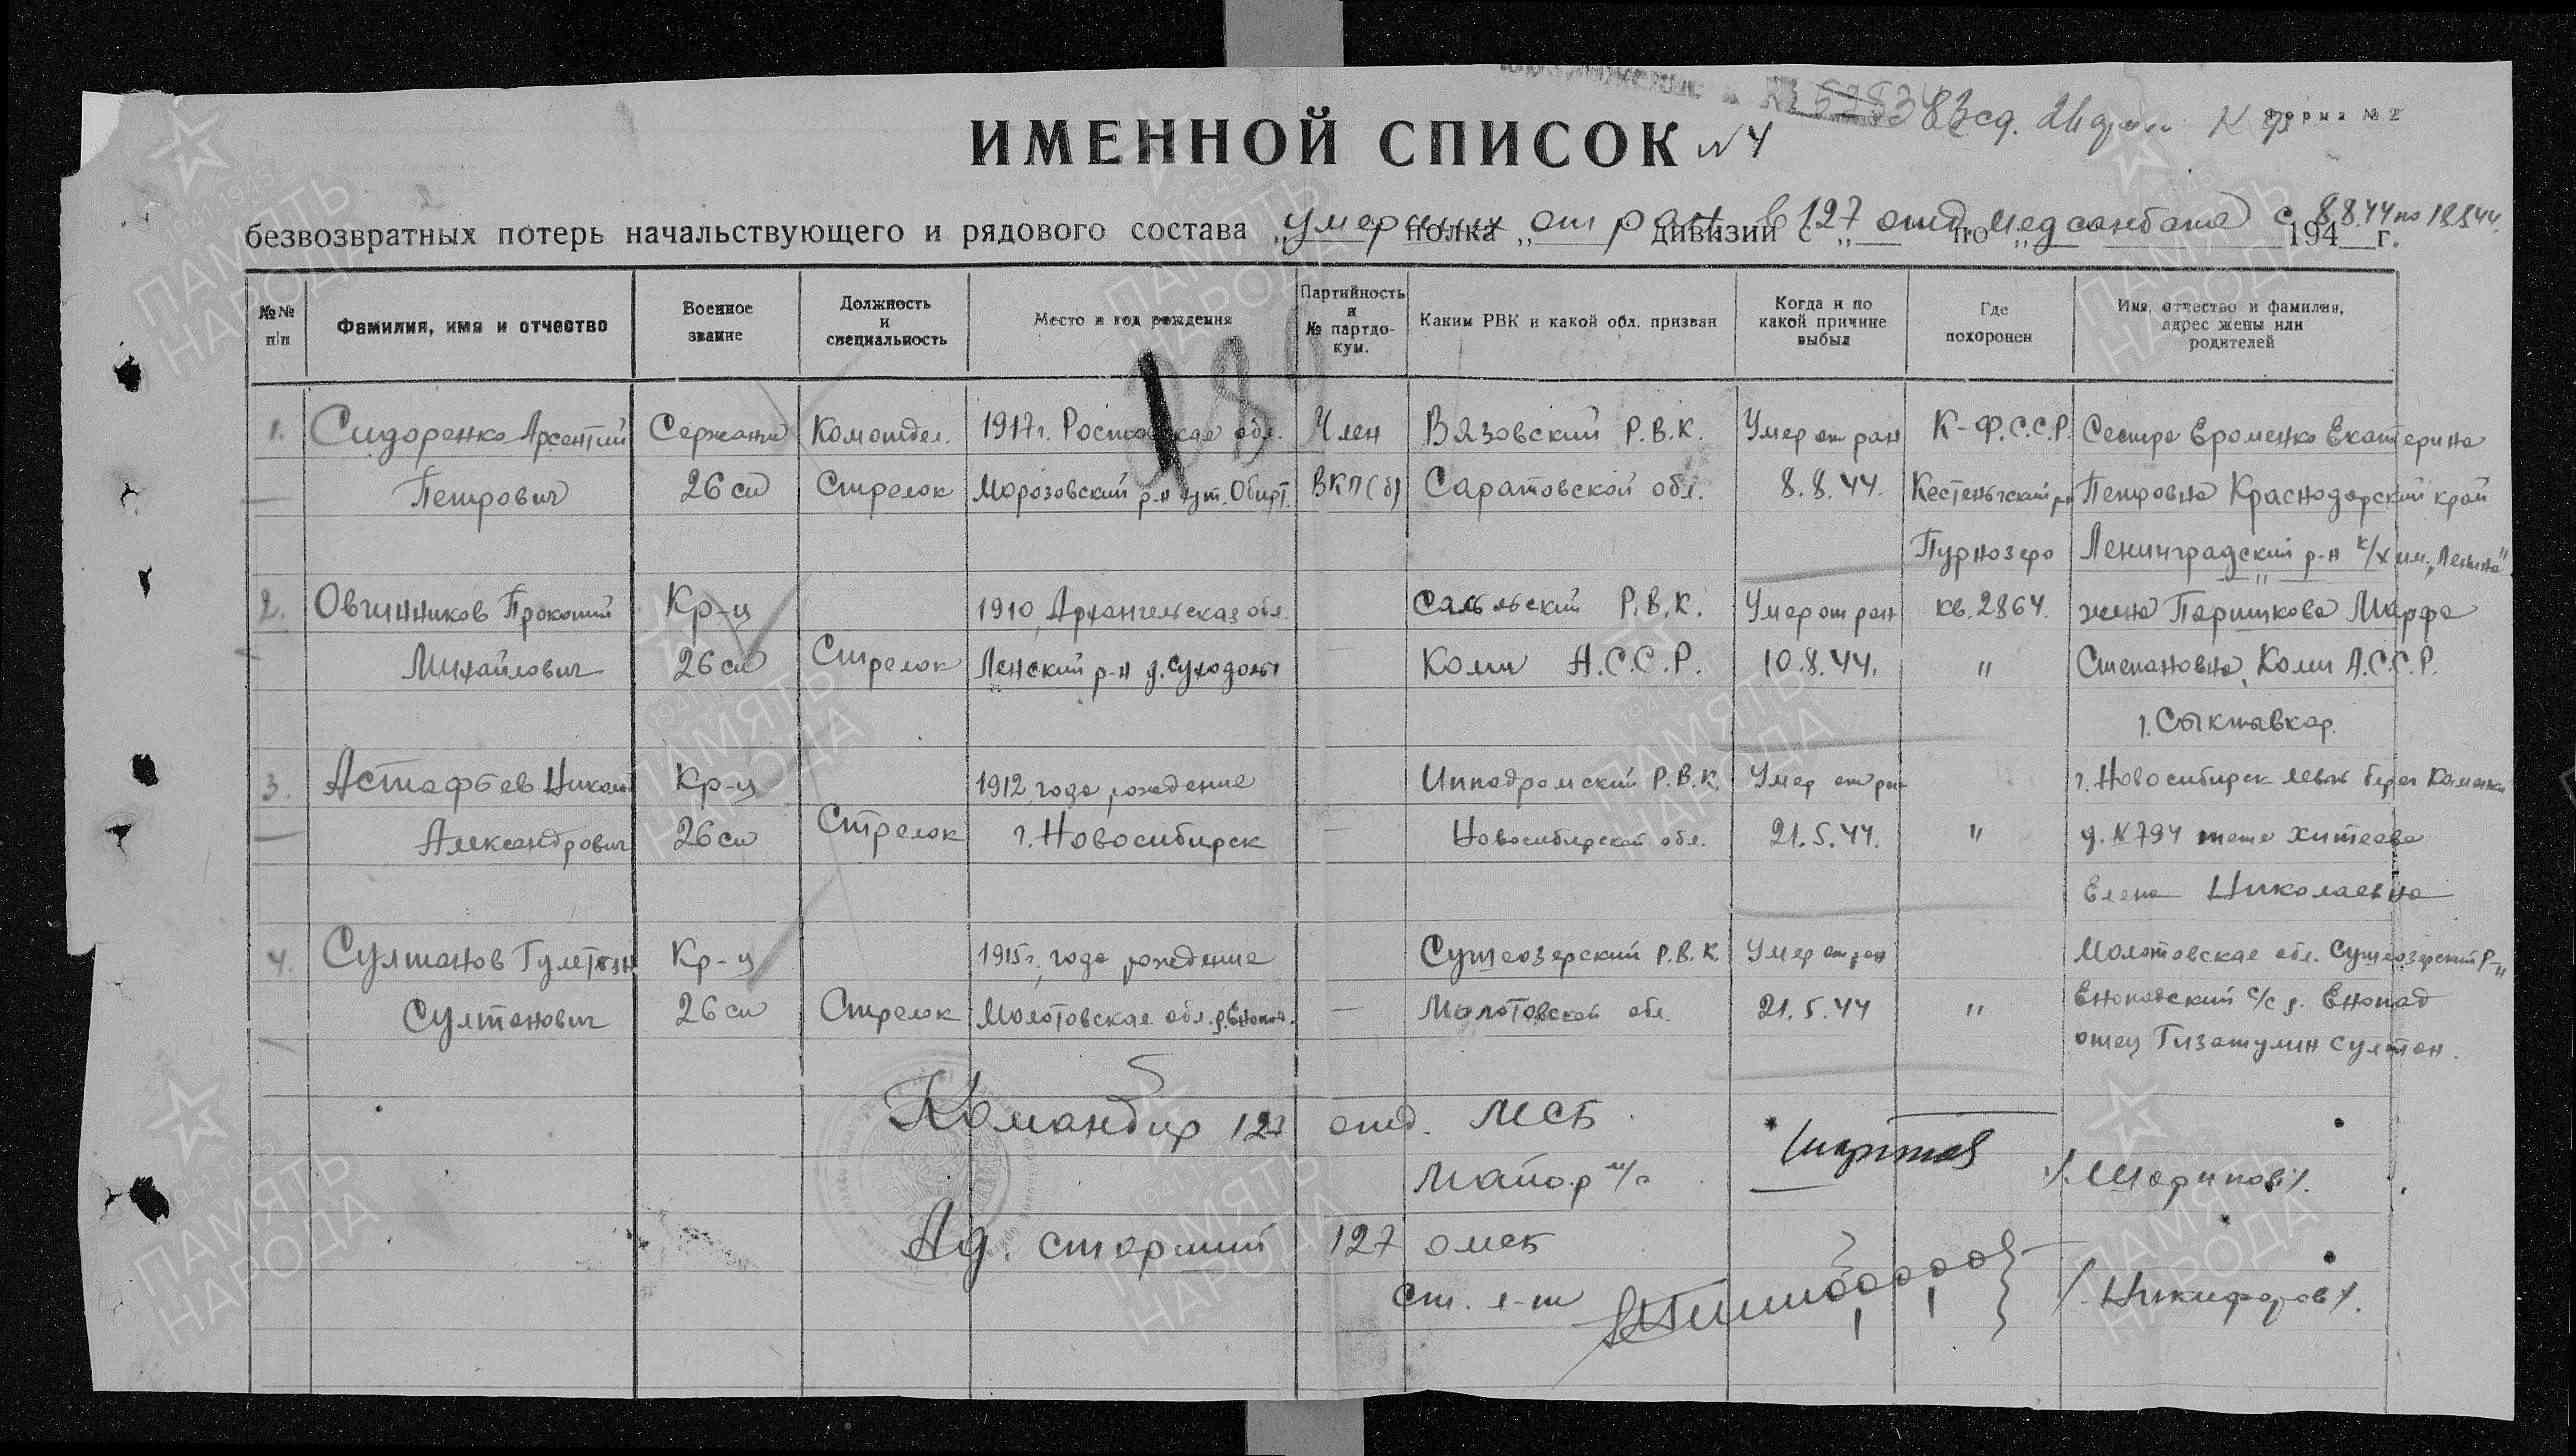 Форма № 2
83 сд.
ИМЕННОЙ СПИСОК N 4
безвозвратных потерь начальствующего и рядового состава „ умерших полка „ от ран дивизии в 127 отд. медсанбате с 8.8.44 по 18.8.44 194 г.
№№ п/п
Фамилия, имя и отчество
Военное звание
Должность и специальность
Место и год рождения
Партийность и № партдокум.
Каким РВК и какой обл. призван
Когда и по какой причине выбыл
Где похоронен
Имя, отчество и фамилия, адрес жены или родителей
1. Сидоренко Арсентий Сержант Комотдел. 1917г. Ростовская обл. Член Вязовский Р.В.К. Умер от ран К-Ф.С.С.Р. Сестра Ероменко Екатерина
Петрович 26 сп Стрелок Морозовский р-н ВКП(б) Саратовской обл. 8.8.44. Кестеньгский р-н Петровна Краснодарский край
Пурнозеро Ленинградский р-н к/х им. „Ленина"
2. Овчинников Прокопий Кр-ц 1910, Архангельская обл. Р.В.К. Умер от ран кв. 2864. жена Паршукова Марфа
Михайлович 26 сп Стрелок Ленский р-н д. Суходолы — Коми А.С.С.Р. 10.8.44. " Степановна, Коми А.С.С.Р.
г. Сыктывкар.
3. Астафьев Никол Кр-ц 1912 года рождение Ипподромский Р.В.К. Умер от ран г. Новосибирск левый берег
Александрович 26 сп Стрелок г. Новосибирск — Новосибирской обл. 21.5.44. " д. N 794 Хитеева
Елена Николаевна
4. Султанов Кр-ц 1915г. года рождение Р.В.К. Умер от ран Молотовская обл. р-н
Султанович 26 сп Стрелок Молотовская обл. — Молотовской обл. 21.5.44 " Енопаевский с/с д. Енопад
отец Гизатулин Султан.
Командир 127 отд. МСБ
Майор м/с /Шарипов/.
Ад. старший 127 омсб
Ст. л-т /Никифоров/.
ПАМЯТЬ НАРОДА
1941-1945